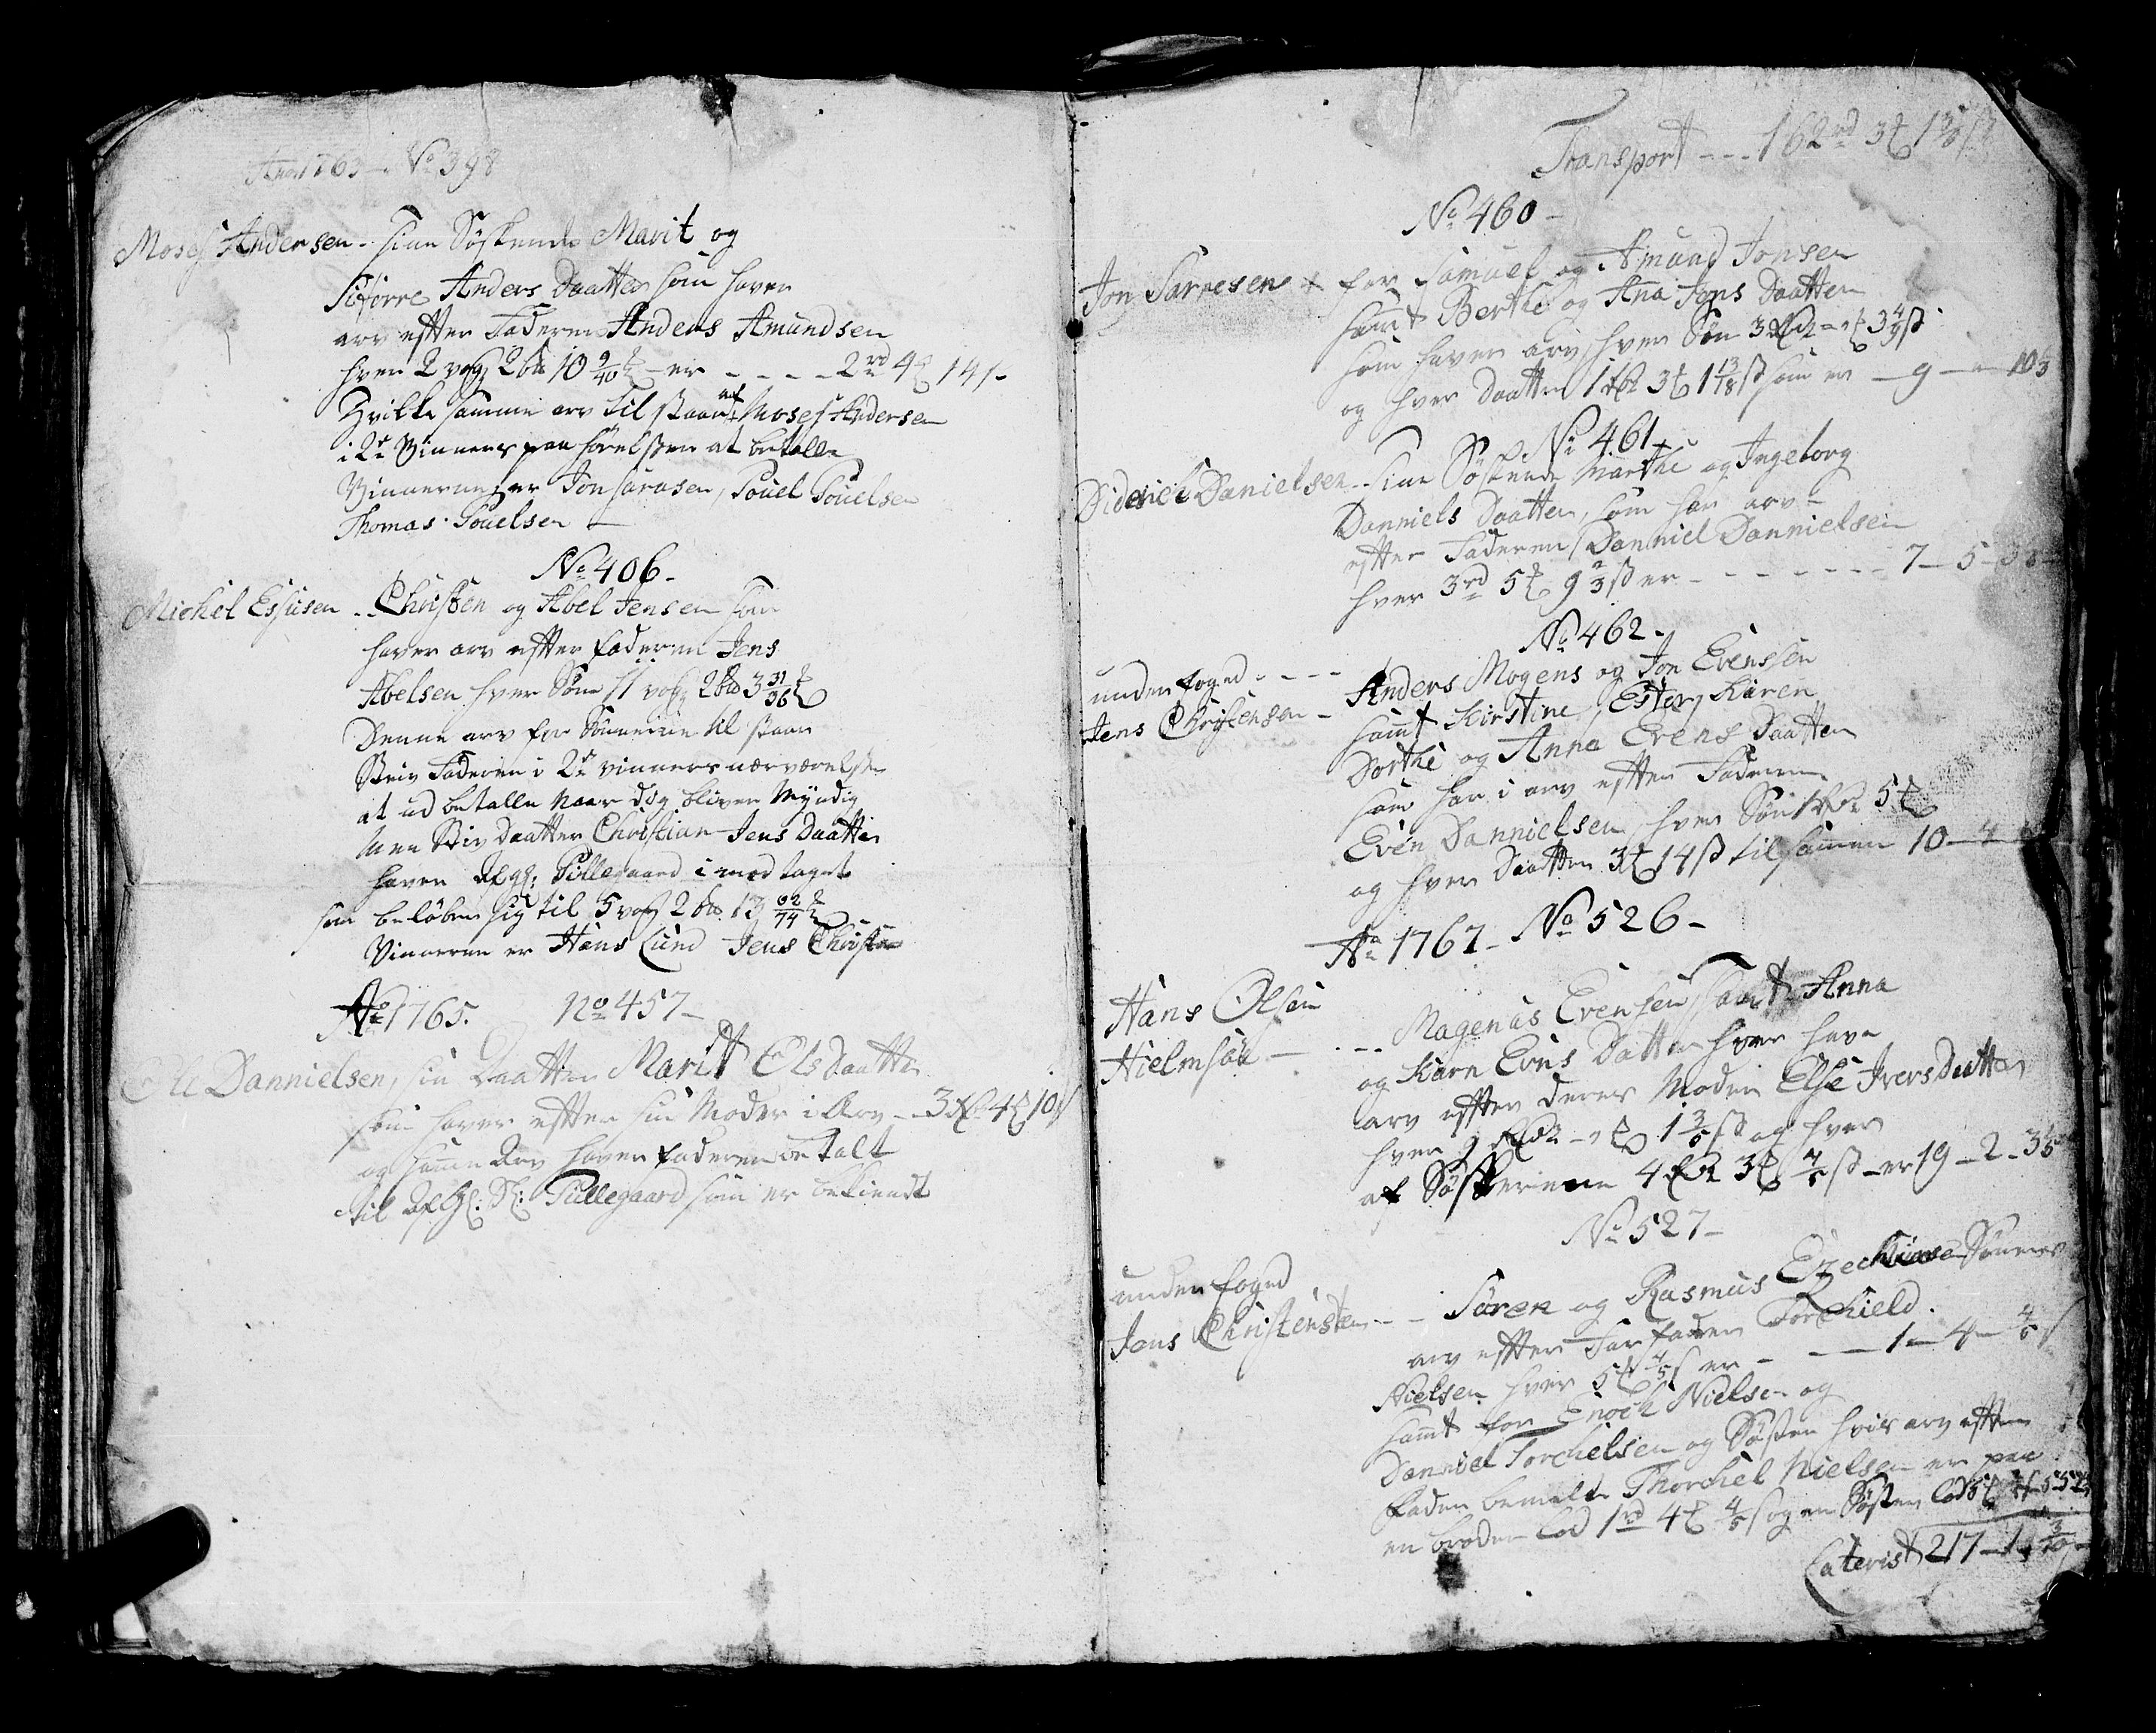 Ano 1763 - No 398
Moses Andersen - sine Søskende Marit og
Siførre Anders Daatter som haver
arv efter Faderen Anders Amundsen
hver 2 vog 2 bd 10 9/40 - er - - - - 2 rd 4 14 s
Hvilke samme arv til staar Moses Andersen
i 2de Vinners paahørelsen at betalle
Vinnerne er Jon sarasen, Pouel Pouelsen
Thomas Pouelsen -
No 406 -
Michel Essusen - Christen og Abel Jensen som
haver arv efter faderen Jens
Abelsen hver Søn 11 vog 2 bd 3 31/36
Denne arv for Sønnerne til staar
Stiv Faderen i 2de vinners nærværelse
at ud betalle naar dig bliver Myndig
Men Stiv Daatter Christian Jens Daatter
haver Pillegaard i mod taget
som beløber sig til 5 vog 2 bd 13 62/74
Vinneren er Hans Lund Jens Christen
Ao 1765. No 457 -
Ole Dannielsen, sin Daatter Marit Ols daatter
som haver efter sin Moder i Arv - 3 4 10 s
og samme Arv haver faderen betalt
til Pillegaard som er bekiendt
Transport - - - 162 rd 3 1 3/8
No 460 -
Jon Sarresen for Samuel og Amund Jonsen
samt Berthe og Ana Jons Daatter
som haver arv, hver Søn 3 3 4/9 ß
og hver Daatter 1 3 1 13/18 ß som er - 9 - 10
No 461
Diderich Danielsen - Sine Søskende Marthe og Ingeborg
Danniels Daatter, som har arv -
efter Faderen Danniel Dannielsen
hver 3 rd 5 9 2/3 ß er - - - - - - - 7 - 5 - 3
No 462 -
under foged - - - - Anders Mogens og Jon Evenssen
Jens Christensen - samt Kirstine, Ester, Karen
Dorthe og Anna Evens Daatter
som har i arv efter Faderen
Even Dannielsen, hver Søn 1 5
og hver Daatter 3 14 ß til samen 10 - 4
Ao 1767 - No 526 -
Hans Olsen - - - Magenus Evensen samt Anna
Hielmsøe - og Karn Evns Datter hver have
arv efter deres Moder Else Ivers Daatter
hver 9 1 3/5 ß og hver
af Søsterne 4 3 4/5 ß - er 19 - 2 - 3
No 527 -
under foged
Jens Christensen - - Søren og Rasmus Ezechias Sønner
arv efter Farfader Torchield
Nielsen hver 5 4/5 s er - - - 1 - 4 - 4/5 s
samt for Enoch Nielsen og
Danniel Torchelsen og Søster hvis arv efter
Fader bemelte Thorchel Nielsen er paa
en broder Lod 1 rd 4 4/5 s og en Søster Lod 5
Laterist 217 - 1 -